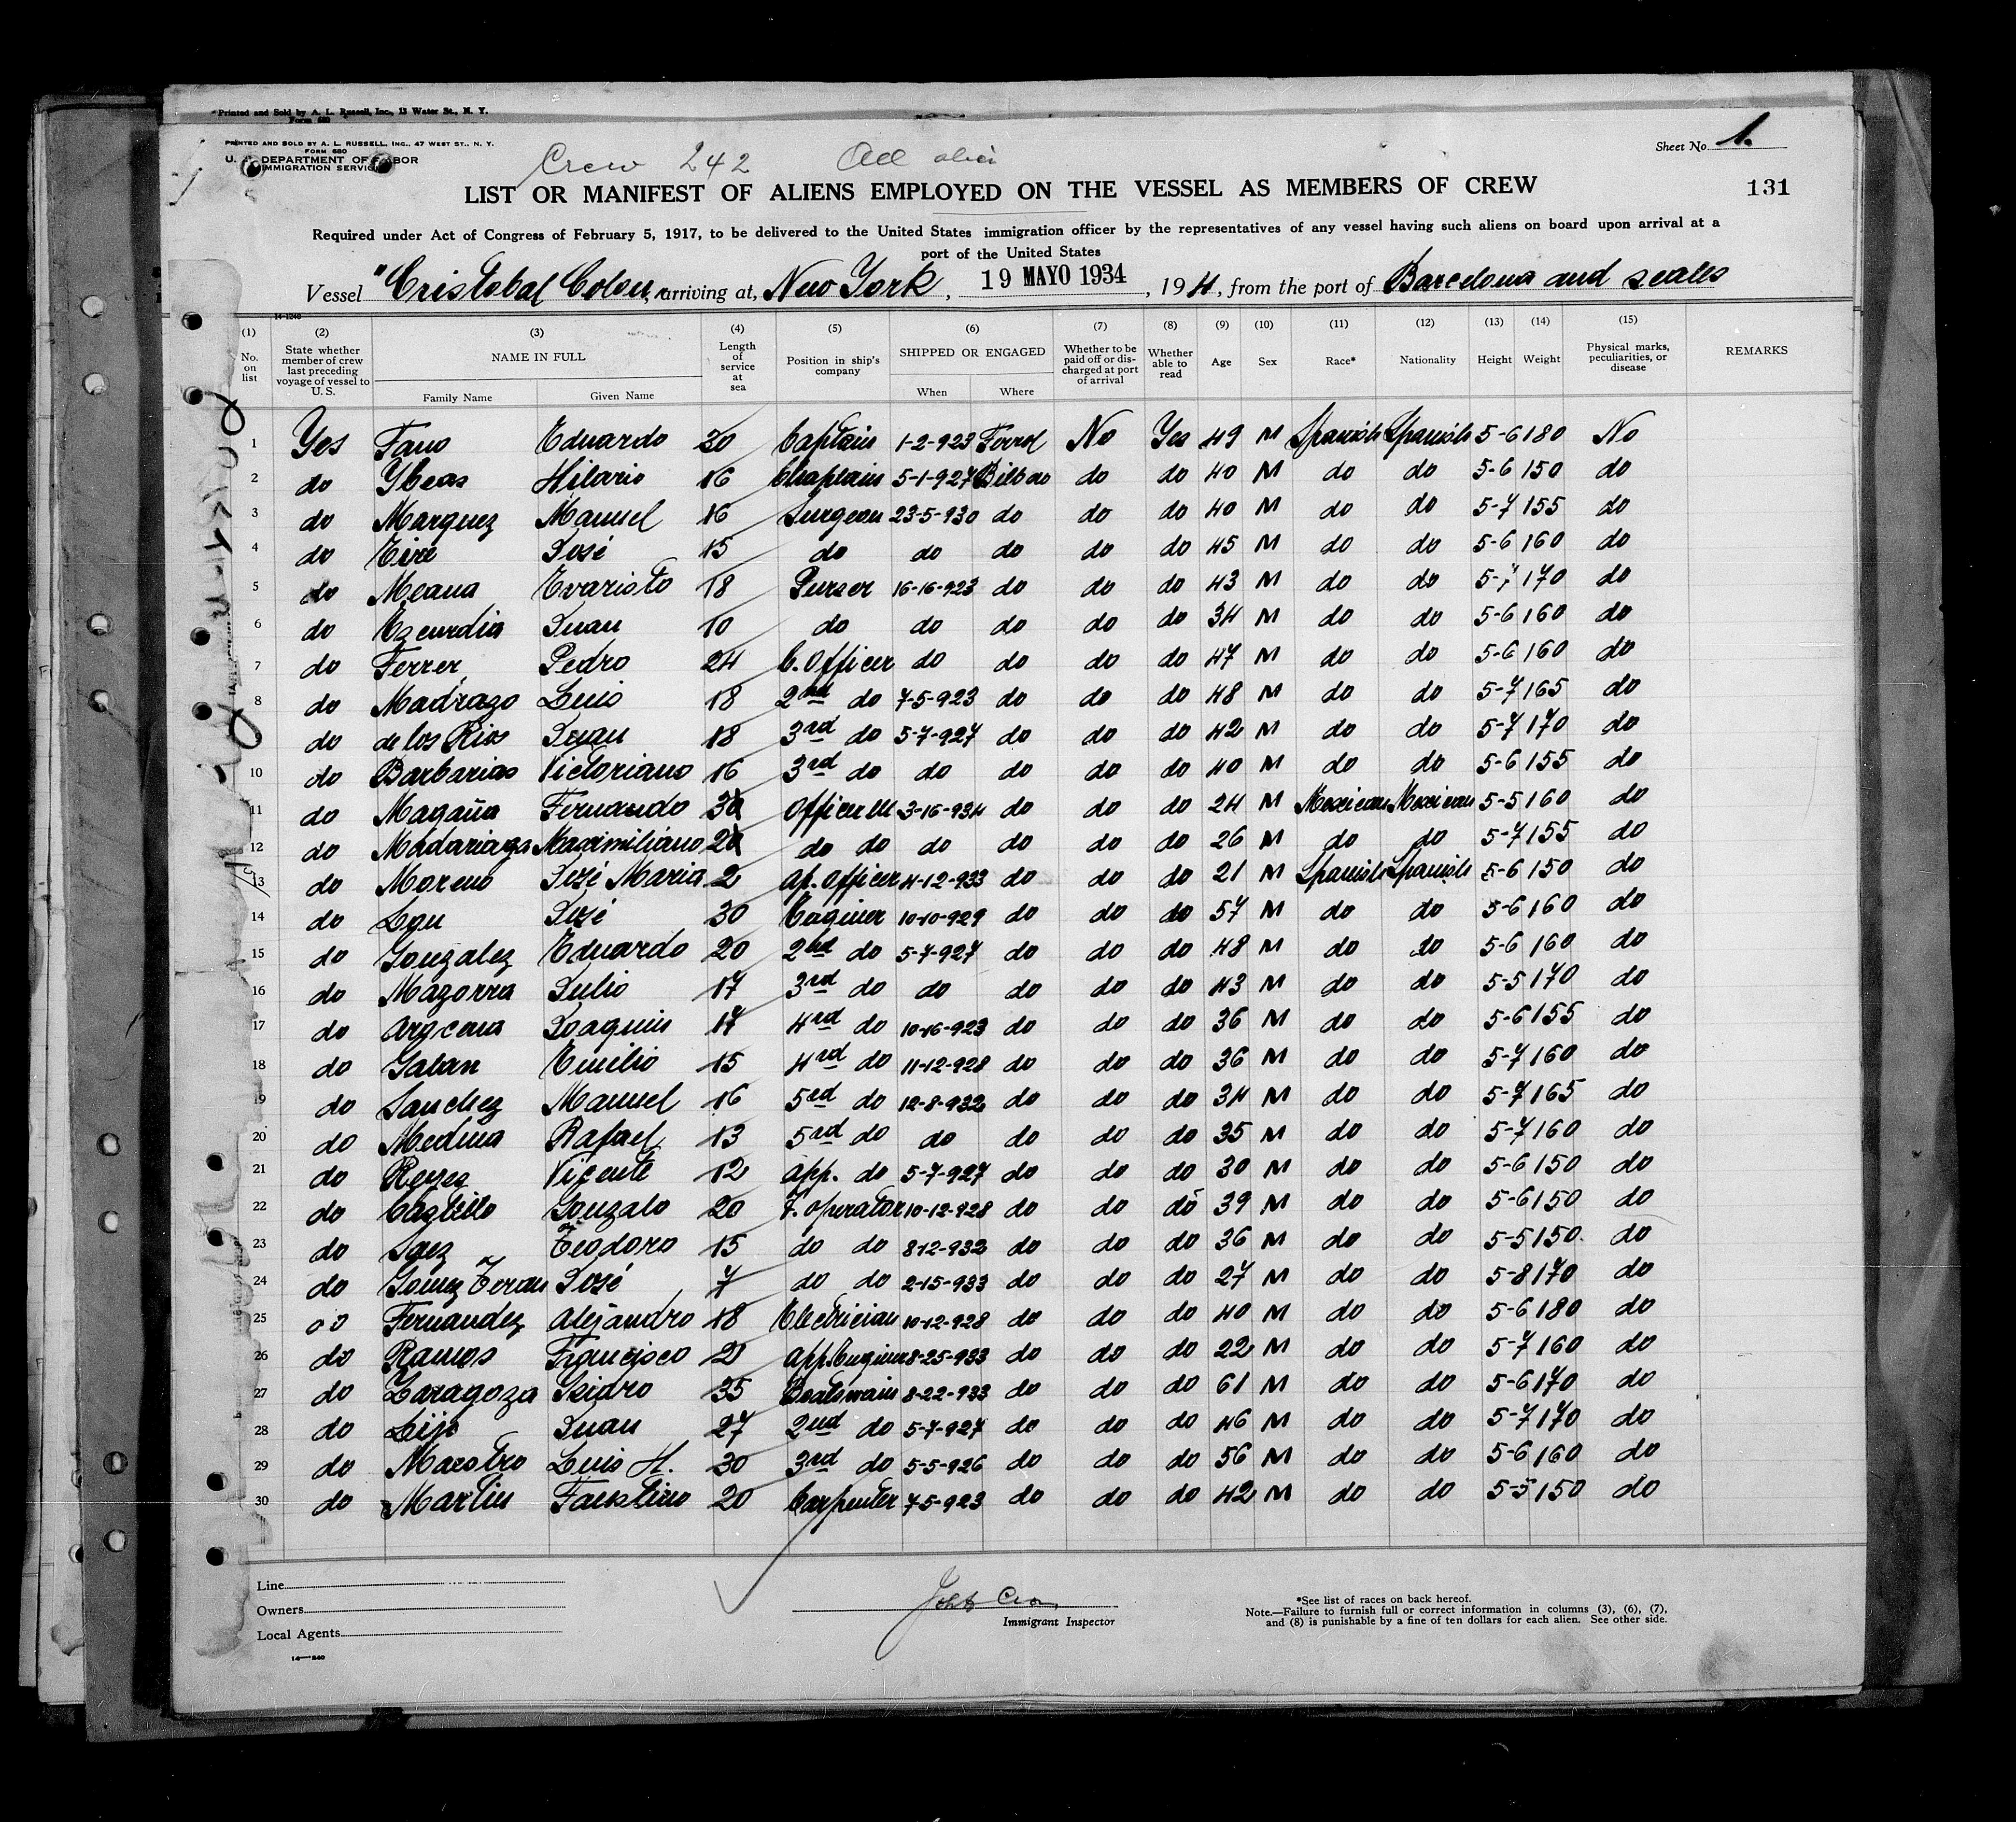 Printed and Sold by A. L. Russell, Inc., 13 Water St., N. Y.
Form 680
PRINTED AND SOLD BY A. L. RUSSELL, INC., 47 WEST ST., N. Y.
FORM 680
U. S. DEPARTMENT OF LABOR
IMMIGRATION SERVICE
Crew 242
Sheet No. 1.
LIST OR MANIFEST OF ALIENS EMPLOYED ON THE VESSEL AS MEMBERS OF CREW
131
Required under Act of Congress of February 5, 1917, to be delivered to the United States immigration officer by the representatives of any vessel having such aliens on board upon arrival at a
port of the United States
Vessel "Cristobal Colon", arriving at, New York, 19 MAYO 1934, 194, from the port of Barcelona and scales
14-1240
(1) (2) (3) (4) (5) (6) (7) (8) (9) (10) (11) (12) (13) (14) (15)
No. on list State whether member of crew last preceding voyage of vessel to U. S. NAME IN FULL Length of service at sea Position in ship's company SHIPPED OR ENGAGED Whether to be paid off or discharged at port of arrival Whether able to read Age Sex Race* Nationality Height Weight Physical marks, peculiarities, or disease REMARKS
Family Name Given Name When Where
1 Yes Fano Eduardo 30 Captain 1-2-923 Ferrol No Yes 49 M Spanish Spanish 5-6 180 No
2 do Ybeas Hilario 16 Chaplain 5-1-927 Bilbao do do 40 M do do 5-6 150 do
3 do Marquez Manuel 16 Surgeon 23-5-930 do do do 40 M do do 5-7 155 do
4 do José 15 do do do do do 45 M do do 5-6 160 do
5 do Meana Evaristo 18 Purser 16-16-923 do do do 43 M do do 5-7 170 do
6 do Ezcurdia Juan 10 do do do do do 34 M do do 5-6 160 do
7 do Ferrer Pedro 24 C. Officer do do do do 47 M do do 5-6 160 do
8 do Madrazo Luis 18 2nd do 7-5-923 do do do 48 M do do 5-7 165 do
do de los Rios Juan 18 3rd do 5-7-927 do do do 42 M do do 5-7 170 do
10 do Barbarias Victoriano 16 3rd do do do do do 40 M do do 5-6 155 do
11 do Magaña Fernando Officer 3-16-934 do do do 24 M Mexican Mexican 5-5 160 do
12 do Madariaga Maximiliano do do do do do do 26 M do do 5-7 155 do
13 do Moreno José Maria 2 Ap. Officer 4-12-933 do do do 21 M Spanish Spanish 5-6 150 do
14 do José 30 Enginer 10-10-929 do do do 57 M do do 5-6 160 do
15 do Gonzalez Eduardo 20 2nd do 5-7-927 do do do 48 M do do 5-6 160 do
16 do Mazorra Julio 17 3rd do do do do do 43 M do do 5-5 170 do
17 do Joaquin 17 4rd do 10-16-923 do do do 36 M do do 5-6 155 do
18 do Galan Emilio 15 4rd do 11-12-928 do do do 36 M do do 5-7 160 do
19 do Sanchez Manuel 16 5rd do 12-8-932 do do do 34 M do do 5-7 165 do
20 do Medina Rafael 13 5rd do do do do do 35 M do do 5-7 160 do
21 do Reyes Vicente 12 App. do 5-7-927 do do do 30 M do do 5-6 150 do
22 do Castillo Gonzalo 20 T. operator 10-12-928 do do do 39 M do do 5-6 150 do
23 do Saez Teodoro 15 do do 8-12-932 do do do 36 M do do 5-5 150 do
24 do Gomez Teran José 7 do do 2-15-933 do do do 27 M do do 5-8 170 do
25 do Fernandez Alejandro 18 Electrician 10-12-928 do do do 40 M do do 5-6 180 do
26 do Ramos Francisco 2 App. Enginer 8-25-933 do do do 22 M do do 5-7 160 do
27 do Zaragoza Isidro 35 Boatswain 8-22-933 do do do 61 M do do 5-6 170 do
28 do Lijo Juan 27 2nd do 5-7-927 do do do 46 M do do 5-7 170 do
29 do Maestro Luis H. 30 3rd do 5-5-926 do do do 56 M do do 5-6 160 do
30 do Martin Faustino 20 Carpenter 7-5-923 do do do 42 M do do 5-5 150 do
Line
Owners
Local Agents
14-1240
Immigrant Inspector
*See list of races on back hereof.
Note.—Failure to furnish full or correct information in columns (3), (6), (7),
and (8) is punishable by a fine of ten dollars for each alien. See other side.